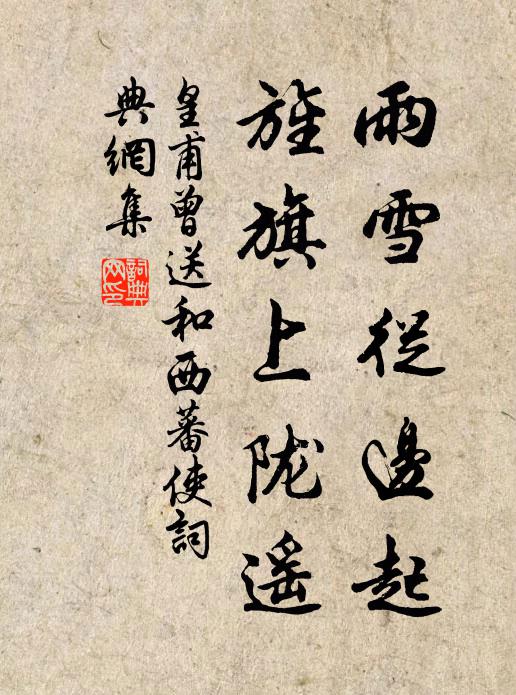 雨雪從邊起
旌旗上陇遥
皇甫曾送和西蕃使詞
典網集
詞典网印